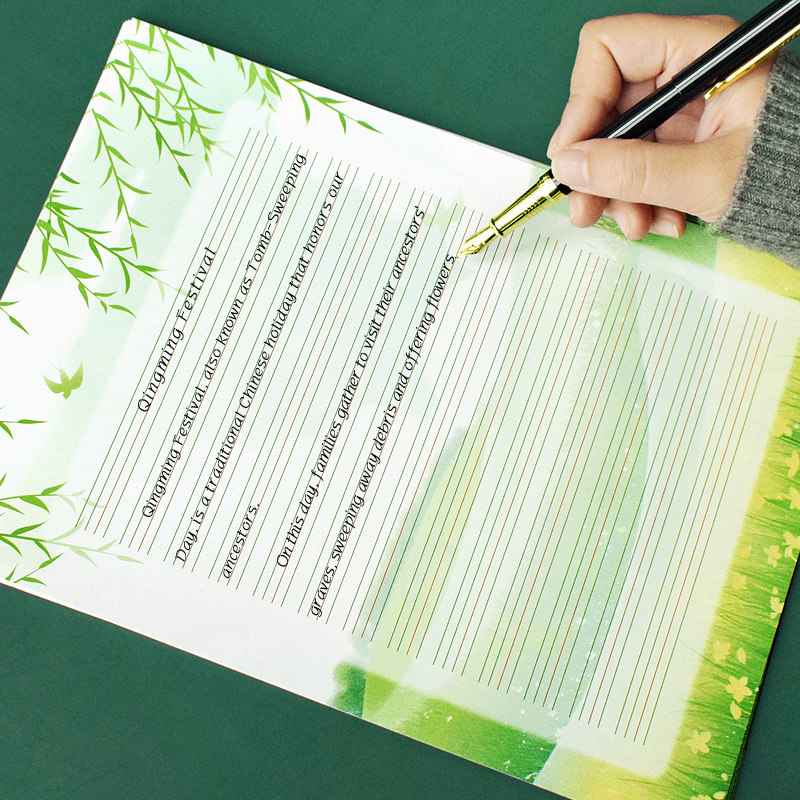 Qingming Festival
Qingming Festival, also known as Tomb-Sweeping
Day, is a traditional Chinese holiday that honors our
ancestors.
On this day, families gather to visit their ancestors'
graves, sweeping away debris and offering flowers.